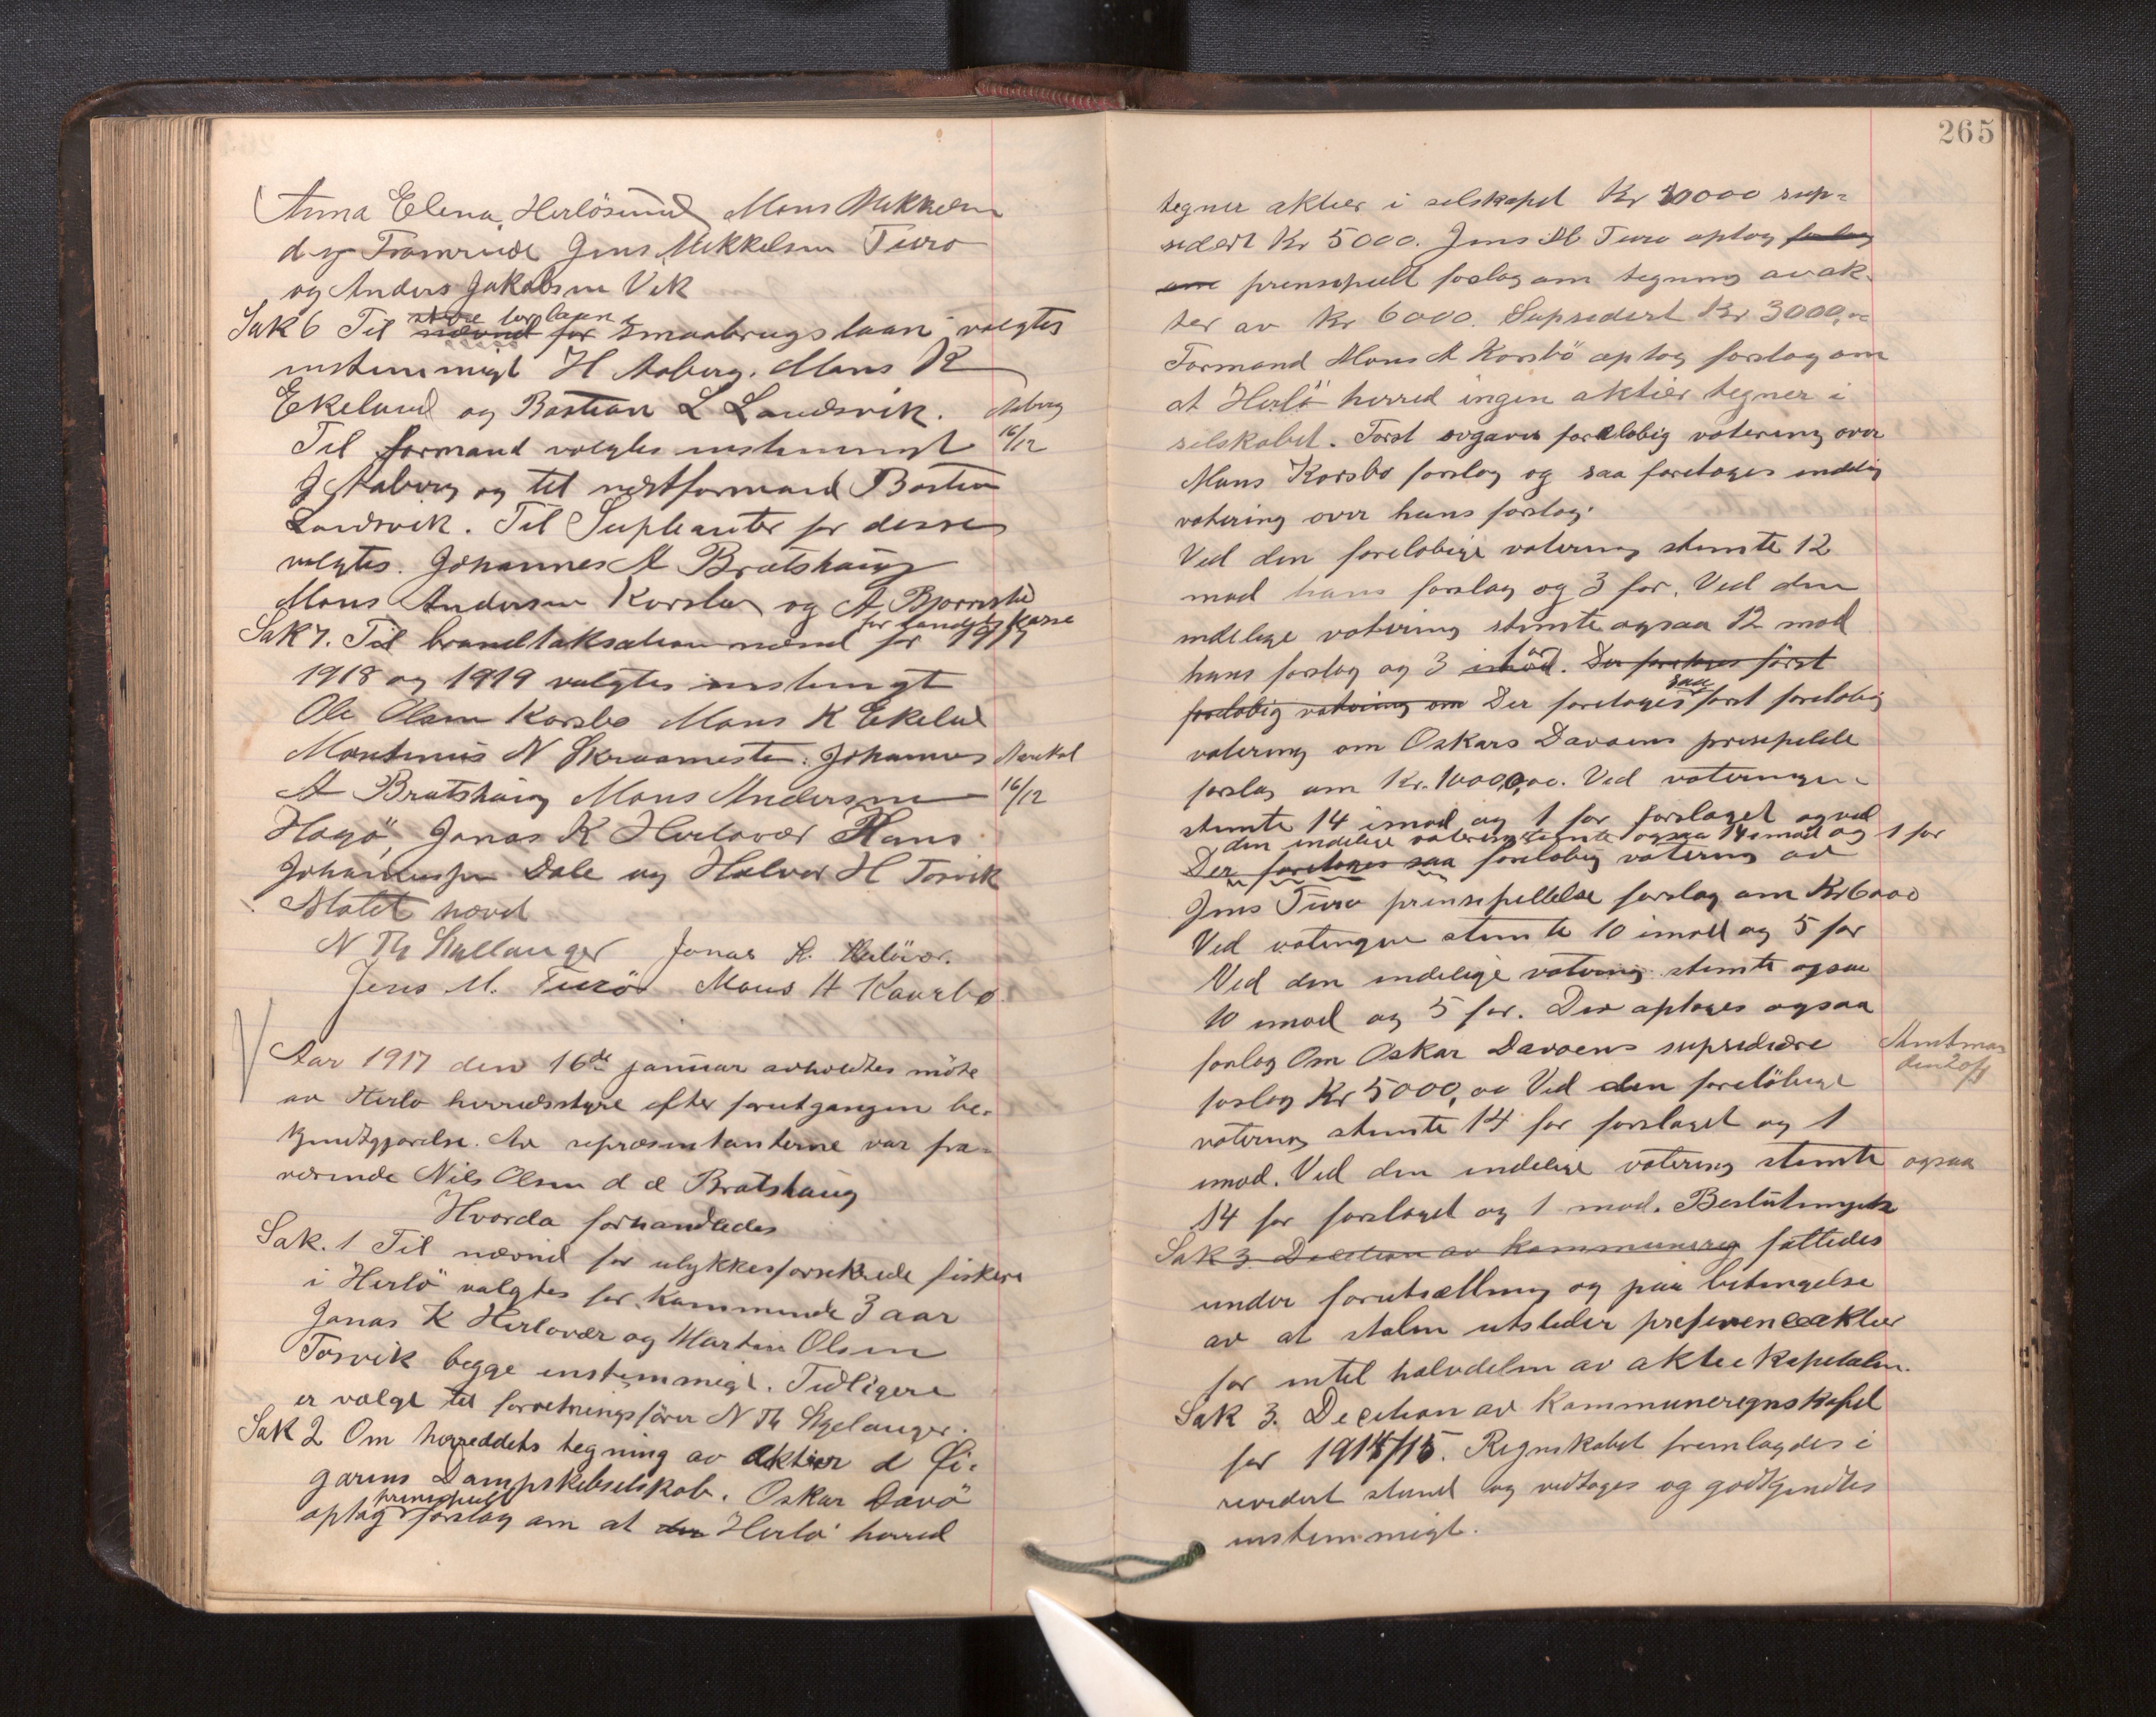 Anna Elena Herlösund Mons Mikkelsen
d y Framreide Jens Mikkelsen Turo
og Anders Jakobsen Vik
Sak 6 Til styre for laane smaabrugslaan valgtes
enstemmigt H Aaberg. Mons R
Ekelund og Bastian L Landsvik.
Aaberg
16/12
Til formand valgtes enstemmigt
J Aaberg og til næstformand Bastian
Landsvik. Til Supleanter for desse
valgtes. Johannes A Bratshaug
Mons Andersen Korsbø og A. Bjørnstø
for landets kasse
Sak 7. Til brandtaksation nævnd for 1917
1918 og 1919 valgtes enstemgt
Ole Olsen Korsbø Mons K Ekelund
Martinus N Skraamestø. Johannes
A Bratshaug Mons Andersen
16/12
Hagö, Jonas K Herlovær Hans
Johannesen Dale og Halvor H Torvik
Møtet hævet
N Th Kyllanger Jonas K. Herlövær.
Jens M. Turö Mons A Kaarbø
Aar 1917 den 16de januar avholdtes möte
av Herlø herredsstyre efter forutgangen be-
kjendtgjørelse. Av repræsentanterne var fra-
værende Nils Olsen d æ Bratshaug
Hvorda forhandledes
Sak. 1 Til nævnd for ulykkesforsikrede fiskere
i Herlö valgtes for kommende 3 aar
Jonas K Herlovær og Martin Olsen
Torsvik begge enstemmigt. Tidligere
er valgt til forretningsförer N Th Kyllanger.
Sak 2 Om herreddets tegning av aktier d Öi-
garens Dampskibsselskab. Oskar Davö
optog prinsipielt forslag om at den Herlø herred
265
tegner aktier i selskapet Kr 10000 sup-
sedert Kr 5000. Jens M Turo optog forslag
om prensipielt forslag om tegning av ak-
ter av Kr 6000. Supsedert Kr 3000,00
Formand Mons A Korsbö optog forslag om
at Herlö herred ingen aktier tegner i
selskabet. Først avgaves foreløbig votering over
Mons Korsbø forslag og saa foretoges endelig
votering over hans forslag.
Ved den foreløbige votering stemte 12
mod hans forslag og 3 for. Ved den
endelige votering stemte ogsaa 12 mod
hans forslag og 3 imod for. Der foretoges först
foreløbig votering om Der foretoges saa først foreløbig
votering om Oskars Davøens prinsipielle
forslag om Kr. 10000,00. Ved voteringen
stemte 14 imod og 1 for forslaget og ved
den endelige votering stemte ogsaa 14 imod og 1 for
Der foretoges saa foreløbig votering av
Jens Turø prinsipellelse forslag om Kr 6000
Ved votingen stemte 10 imod og 5 for
Ved den endelige votering stemte ogsaa
10 imod og 5 for. Der optoges ogsaa
forslag Om Oskar Davøens supsediære
Amtman
forslag Kr 5000,00 Ved den forelöbige
votering stemte 14 for forslaget og 1
imod. Ved den endelige votering stemte ogsaa
14 for forslaget og 1 mod. Beslutningen
Sak 3 Decition av kommunereg fattedes
under forutsætning og paa betingelse
av at staten utsteder preferenceaktier
for intil halvdelen av aktiekapitalen.
Sak 3. Decition av kommuneregnskapet
for 1914/15. Regnskabet fremlagdes i
revidert stand og vedtoges og godkjendtes
enstemmigt.